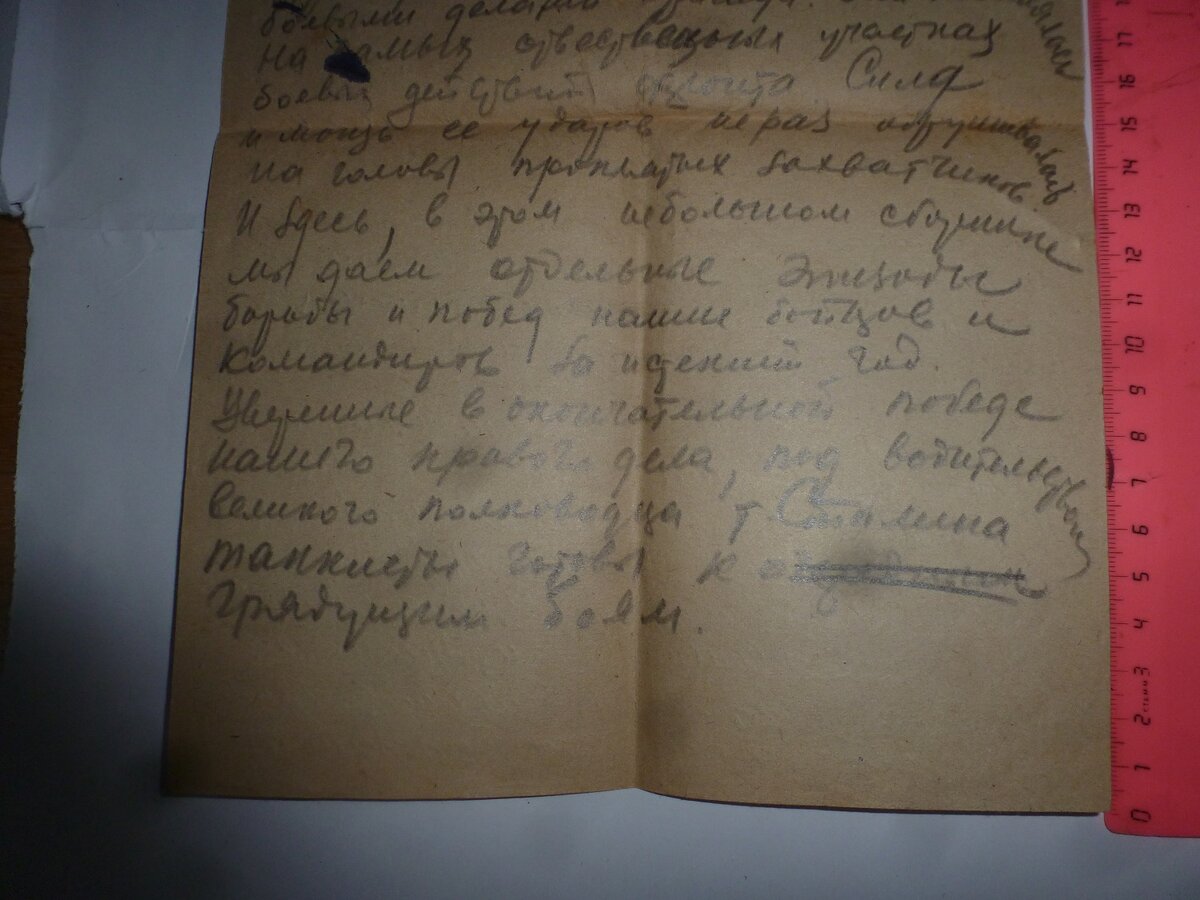 боевыми делами
на самых ответственных участках
боевых действий фронта. Сила
и мощь ее ударов не раз обрушивалась
на головы проклятых захватчиков.
И здесь, в этом небольшом сборнике
мы даем отдельные эпизоды
борьбы и побед наших бойцов и
командиров за истекший год.
Уверенные в окончательной победе
нашего правого дела, под водительством
великого полководца т Сталина
танкисты готовы к
грядущим боям.
17 16 15 14 13 12 11 10 9 8 7 6 5 4 3 2 1 0